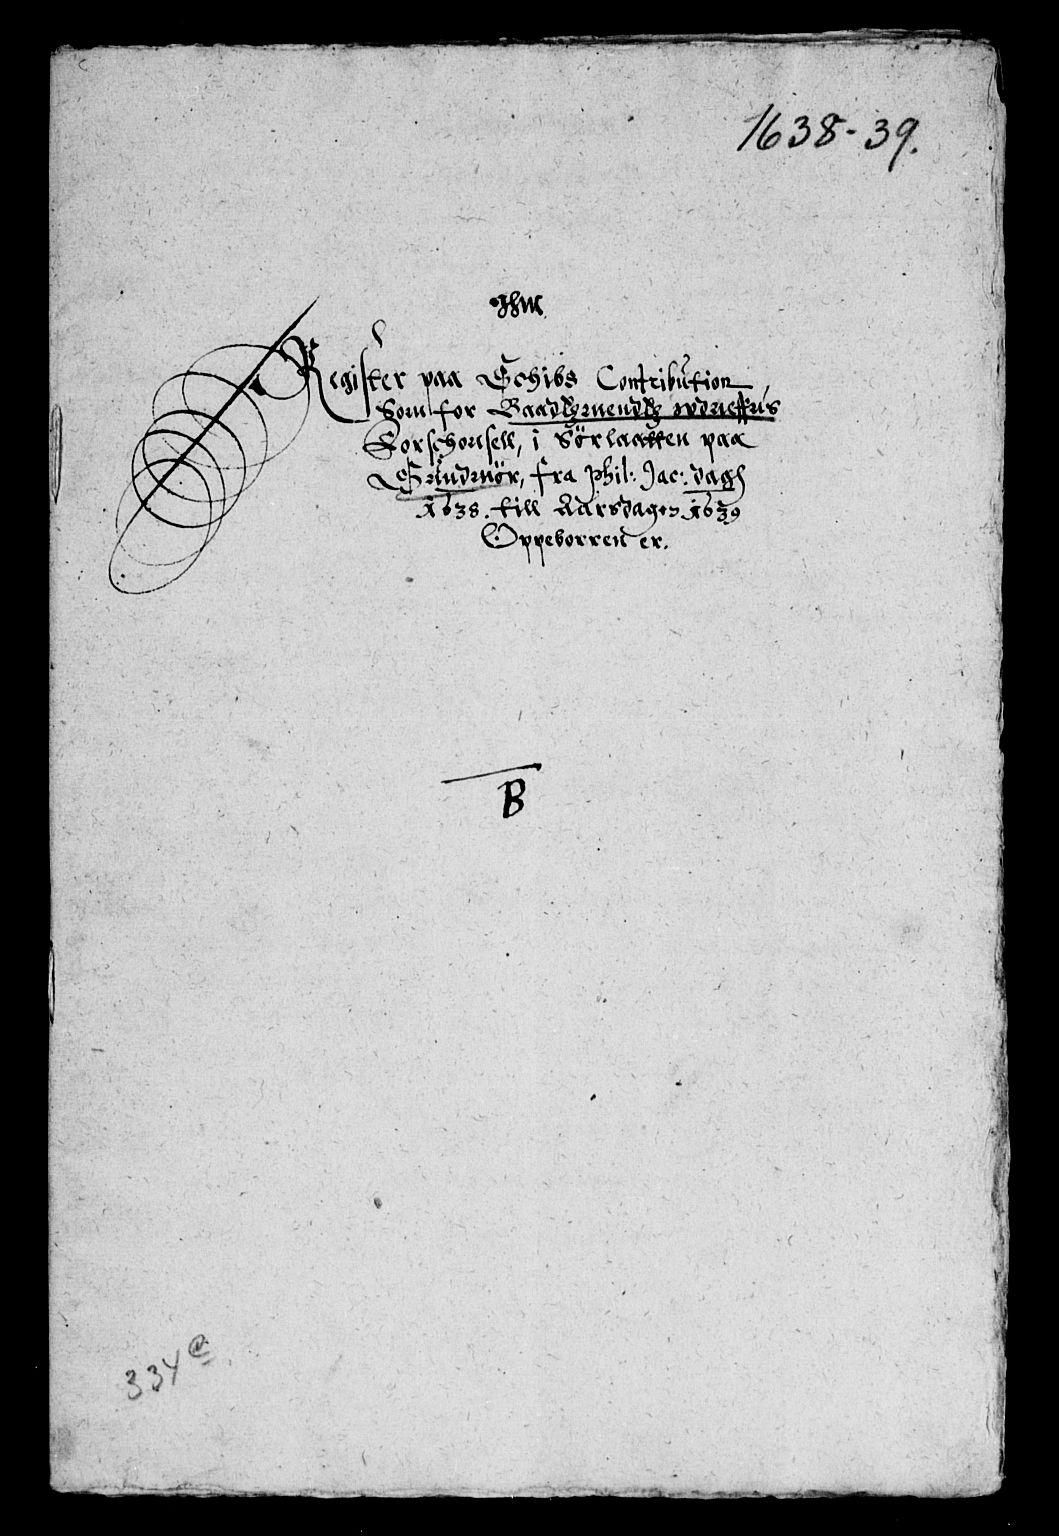 1638-39.
Register paa Schibs Contribution
Som for Baadtzmendtz
Forschonsell, i Sörlaatten paa
Sundmör, fra Phil: Jac: dag
1638. till Aarsdagen 1639
Oppeborren er.
B
334